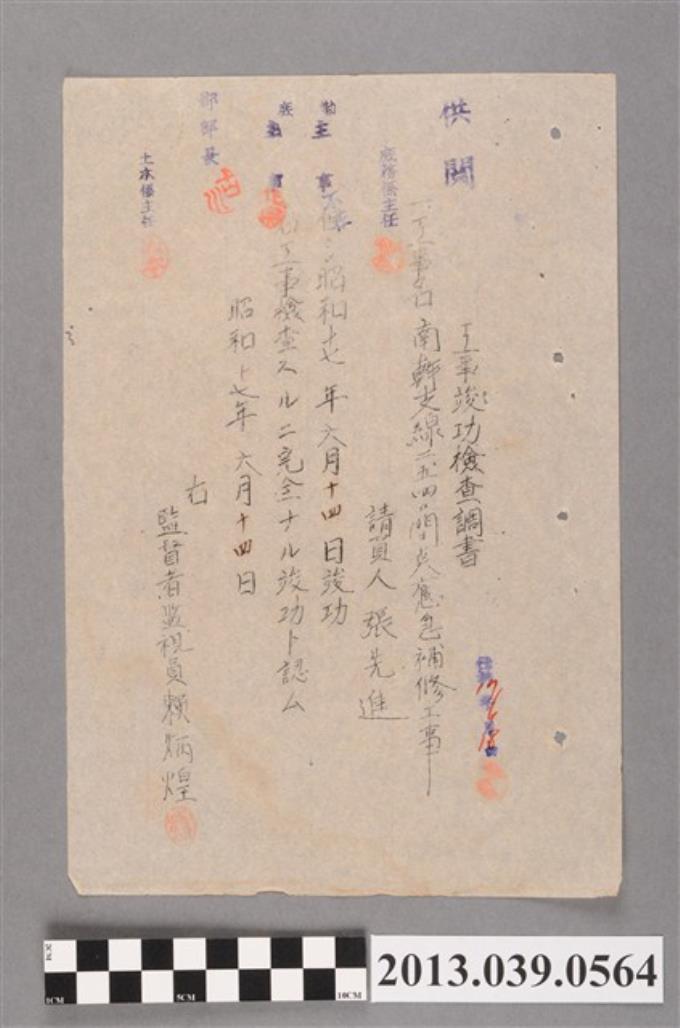 供閲
工事竣功檢查調書
庶務係主任
一、工事名 南幹支線二五四間点應急補修工事
請負人 張先進
主事
昭和十七年六月十四日竣功
工事檢查スルニ完全ナル竣功ト認ム
昭和十七年六月十四日
部長
右
監督者監視員賴炳煌
土木係主任
5CM
10CM
2013.039.0564